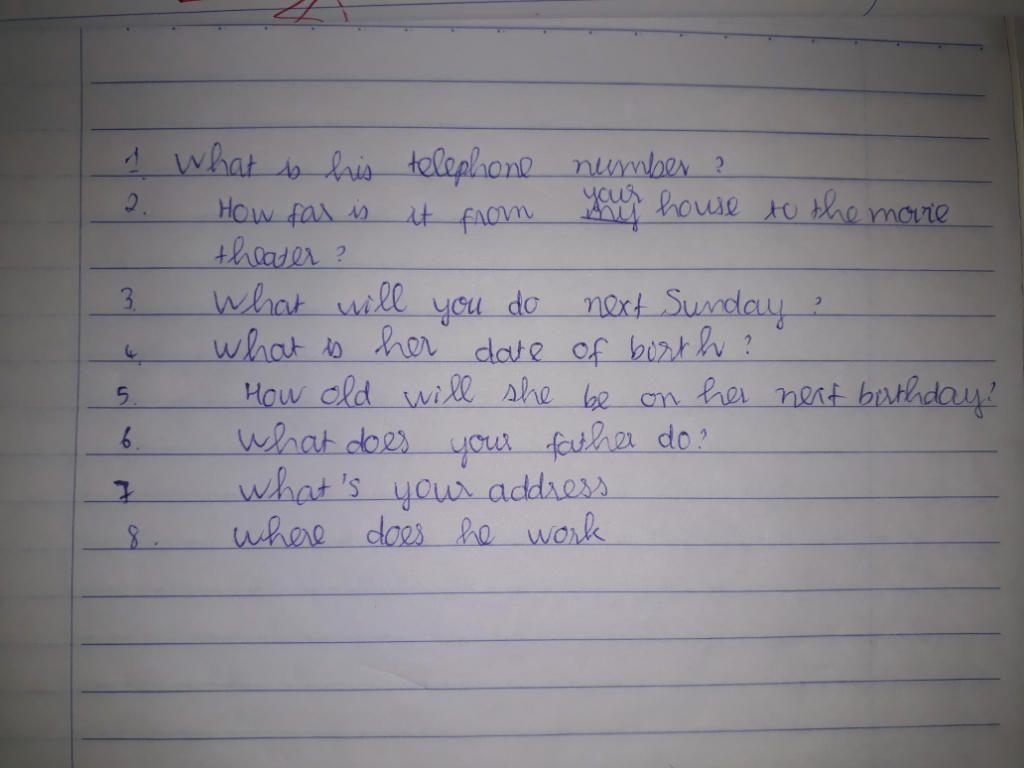 1. What is his telephone number?
2. How far is it from your my house to the movie
theater?
3. What will you do next Sunday?
4. What is her date of birth?
5. How old will she be on her next birthday?
6. What does your father do?
7 What's your address
8. Where does he work